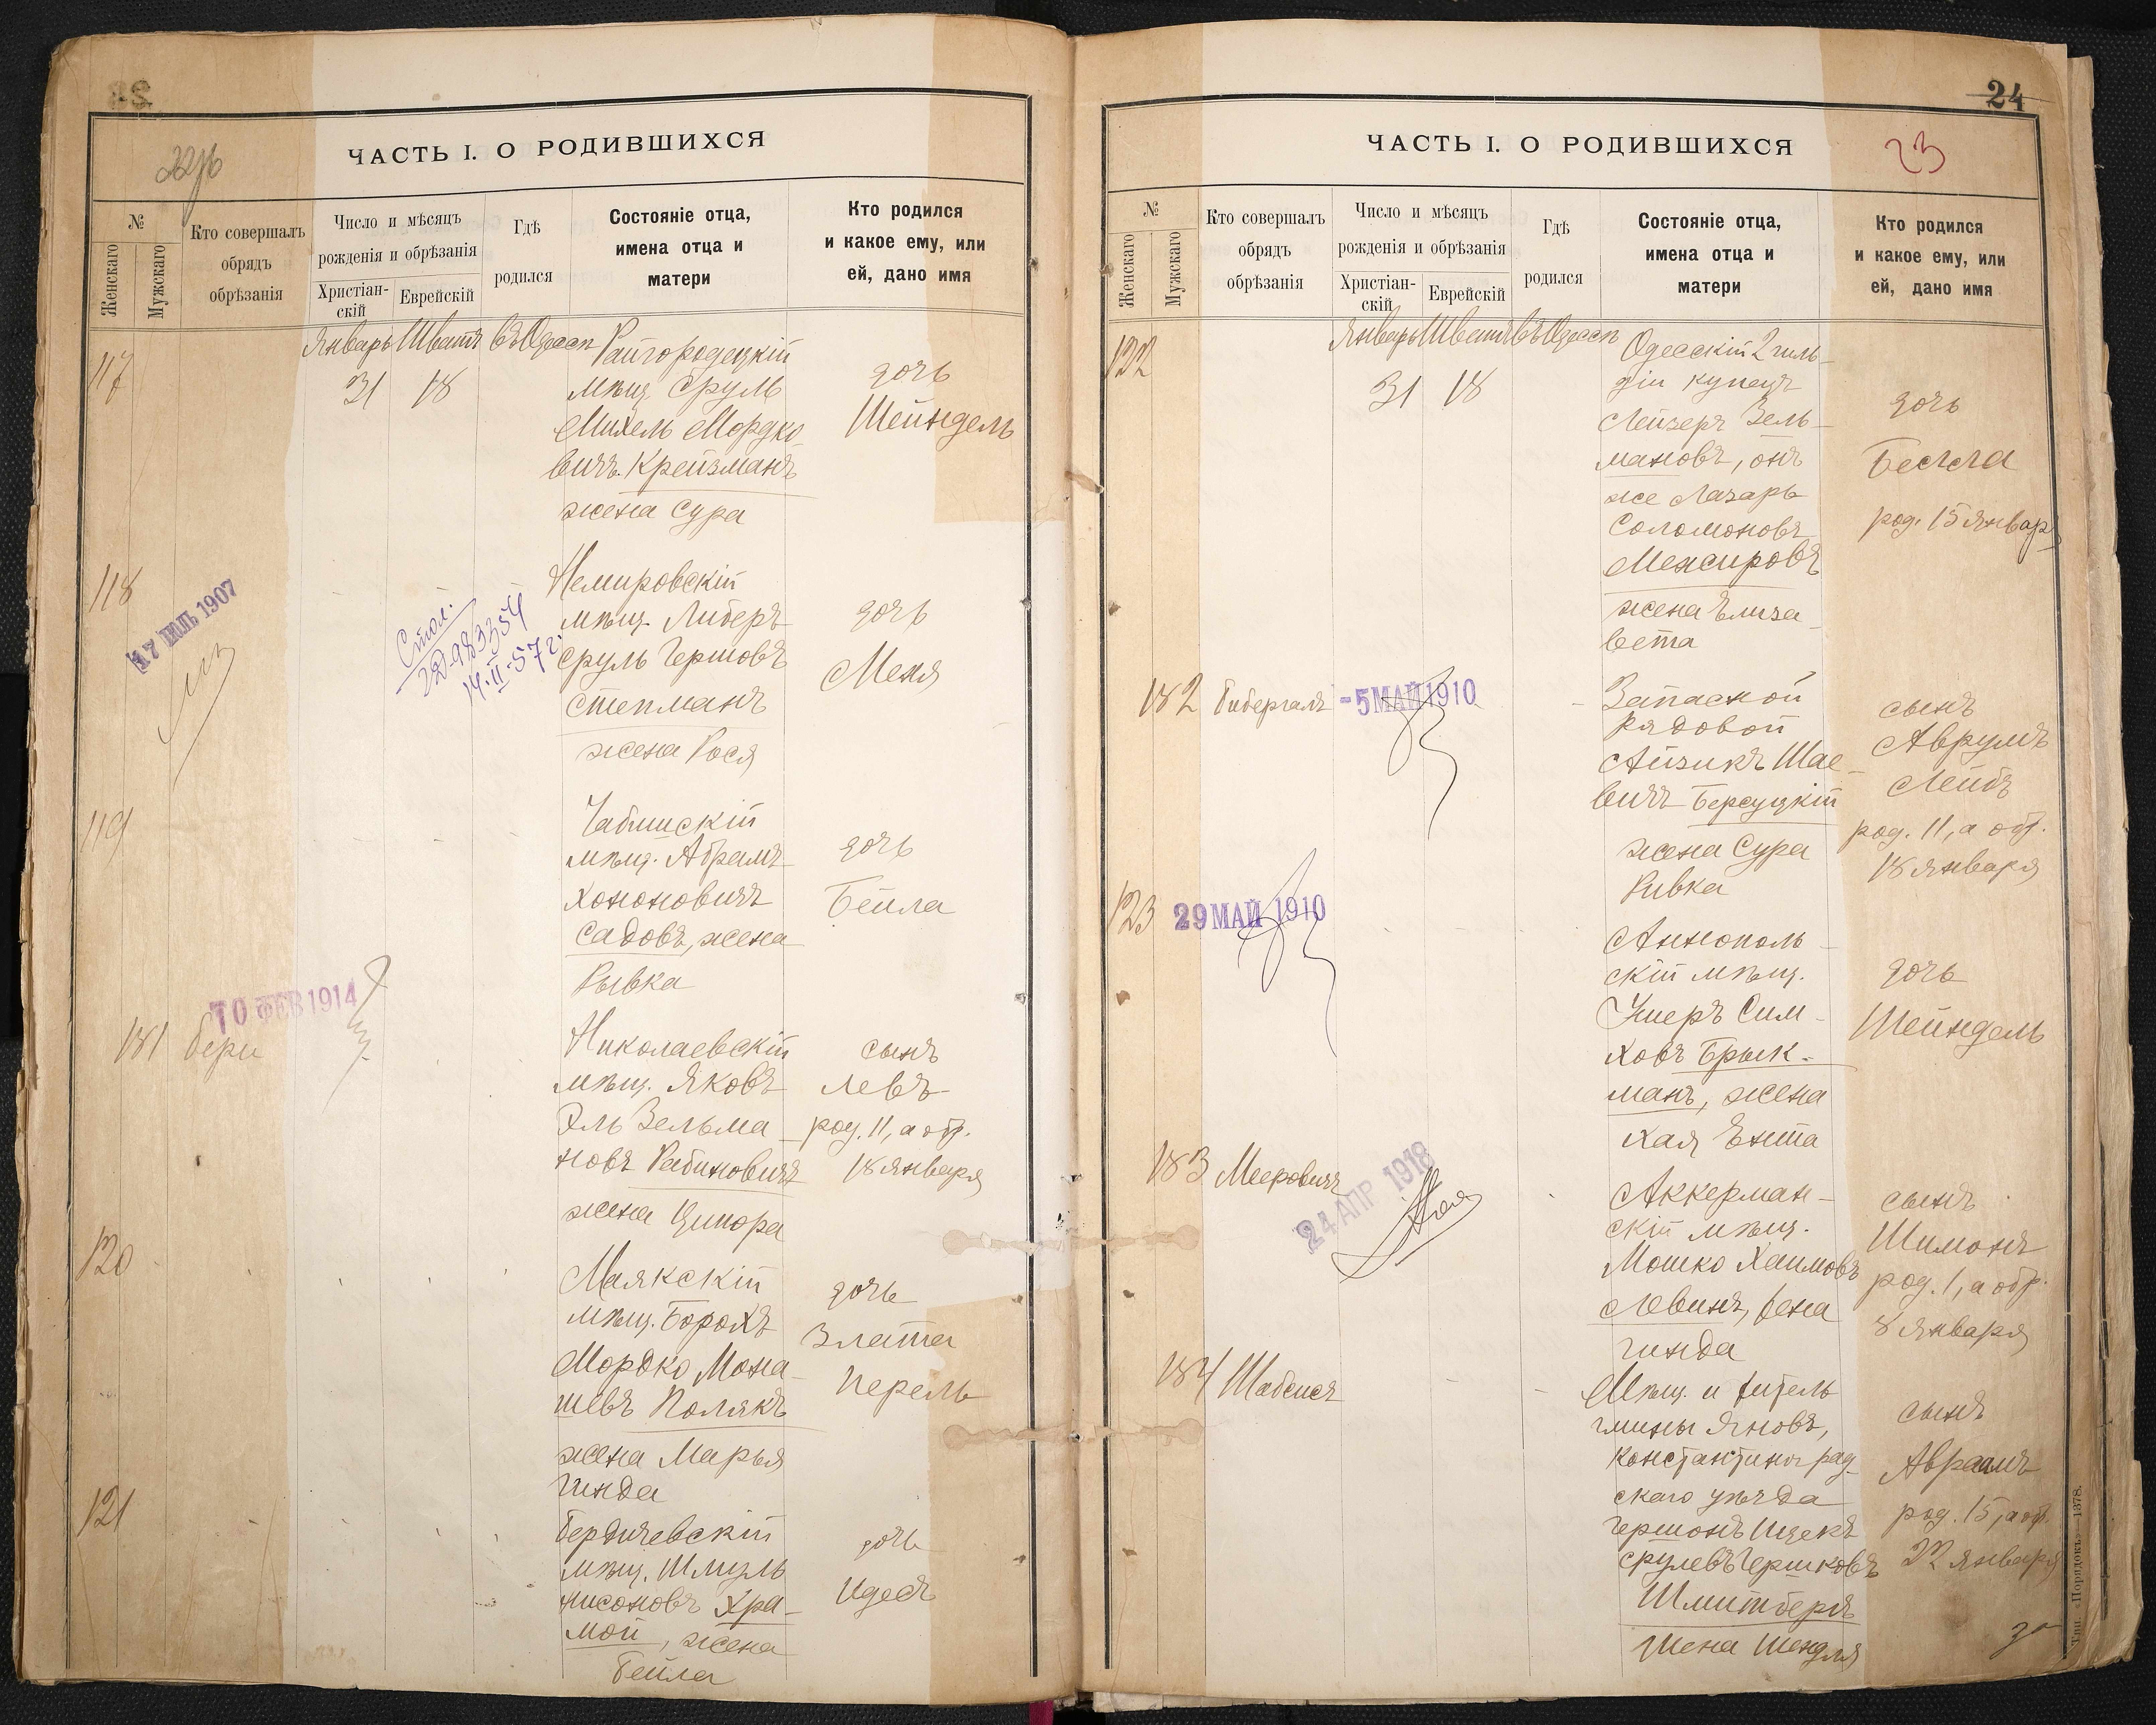 24
23
ЧАСТЬ I. О РОДИВШИХСЯ
№
Женскаго
Мужскаго
Кто совершалъ
обрядъ
обрѣзанія
Число и мѣсяцъ
рожденія и обрѣзанія
Христіан-
скій
Еврейскій
Гдѣ
родился
Состояніе отца,
имена отца и
матери
Кто родился
и какое ему, или
ей, дано имя
117
Январь Шватъ въ Одессѣ
31 18
Райгородецкій
мѣщ. Сруль
Михель Мордко
вичъ Крейзманъ
жена Сура
дочь
Шейндель
118
17 ІЮЛЬ 1907
Стол.
14.II-57 г.
Немировскій
мѣщ. Либеръ
Сруль Гершовъ
Степманъ
жена Рося
дочь
Меня
119
мѣщ. Абрамъ
Хононовичъ
Садовъ, жена
Рывка
дочь
Бейла
10 ФЕВ 1914
181 Бери
Николаевскій
мѣщ. Яковъ
Эль Зельма
новъ Рабиновичъ
жена Ципора
сынъ
Левъ
род. 11, а обр.
18 января
120
Маякскій
мѣщ. Борохъ
Мордко Мона
шевъ Полякъ
жена Марья
Гинда
дочь
Злата
Перель
121
Бердичевскій
мѣщ. Шмуль
Нисоновъ Хра-
мой, жена
Бейла
дочь
Идесъ
ЧАСТЬ I. О РОДИВШИХСЯ
№
Женскаго
Мужскаго
Кто совершалъ
обрядъ
обрѣзанія
Число и мѣсяцъ
рожденія и обрѣзанія
Христіан-
скій
Еврейскій
Гдѣ
родился
Состояніе отца,
имена отца и
матери
Кто родился
и какое ему, или
ей, дано имя
122
Январь Шватъ въ Одессѣ
31 18
Одесскій 2 гиль-
діи купецъ
Лейзеръ Зель-
мановъ, онъ
же Лазарь
Соломоновъ
Межировъ
жена Елиза
вета
дочь
Бесса
род. 15 январ
182 Бибергалъ
-5 МАЙ 1910
Запасной
рядовой
Айзикъ Шае-
вичъ Берсуцкій
жена Сура
Ривка
сынъ
Аврумъ
Лейбъ
род. 11, а обр.
18 января
123
29 МАЙ 1910
Аннополь-
скій мѣщ.
Ушеръ Сим-
ховъ Брык-
манъ, жена
Хая Ента
дочь
Шейндель
183 Мееровичъ
24 АПР 1918
Аккерман-
скій мѣщ.
Мошко Хаимовъ
Левинъ, жена
Гинда
сынъ
Шимонъ
род. 1, а обр.
8 января
184 Шабсисъ
Мѣщ. и житель
гмины Яновъ,
Константиноград-
скаго уѣзда
Гершонъ Ицекъ
Срулевъ Гершковъ
Шмитбергъ
жена Шендля
сынъ
Авраамъ
род. 15, а обр.
22 января
Тип. «Порядокъ» 1378.